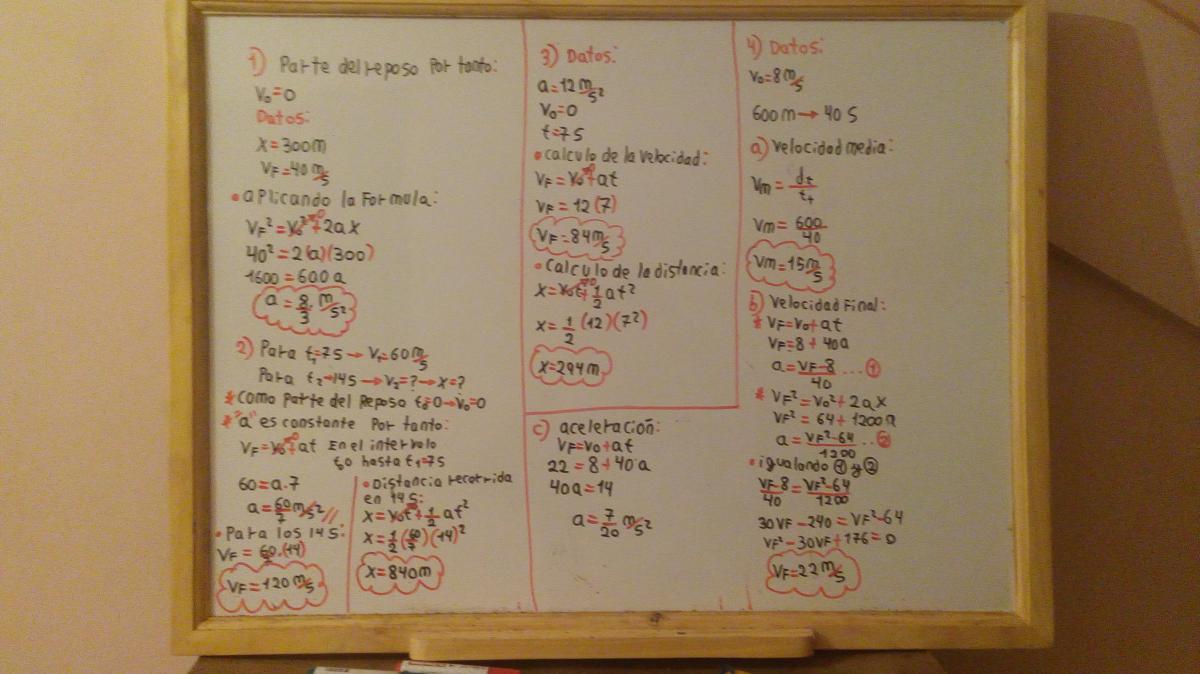 1) Parte del reposo Por tanto:
V₀=0
Datos:
X=300m
VF=40 m/s
• aplicando la Formula:
VF²=V₀²+2aX
40²=2(a)(300)
1600=600a
a=8/3 m/s²
2) Para t₁=7s→V₁=60 m/s
Para t₂→14s→V₂=?→X=?
*Como Parte del Reposo t₀=0→V₀=0
*"a" es constante Por tanto:
VF=V₀+at En el intervalo
t₀ hasta t₁=7s
60=a.7
a=60/7 m/s²//
• Para los 14s:
VF=60/7.(14)
VF=120 m/s
• Distancia recorrida
en 14s:
X=V₀t+1/2 at²
X=1/2(60/7)(14)²
X=840m
3) Datos:
a=12 m/s²
V₀=0
t=7s
• Calculo de la Velocidad:
VF=V₀+at
VF=12(7)
VF=84 m/s
• Calculo de la distancia:
X=V₀t+1/2 at²
X=1/2(12)(7²)
X=294m
4) Datos:
V₀=8 m/s
600m→40s
a) Velocidad media:
Vm=dt/tt
Vm=600/40
Vm=15 m/s
b) Velocidad Final:
* VF=V₀+at
VF=8+40a
a=VF-8/40 ...①
* VF²=V₀²+2aX
VF²=64+1200a
a=VF²-64/1200 ..②
• igualando ① y ②
VF-8/40=VF²-64/1200
30VF-240=VF²-64
VF²-30VF+176=0
VF=22 m/s
c) aceleración:
VF=V₀+at
22=8+40a
40a=14
a=7/20 m/s²